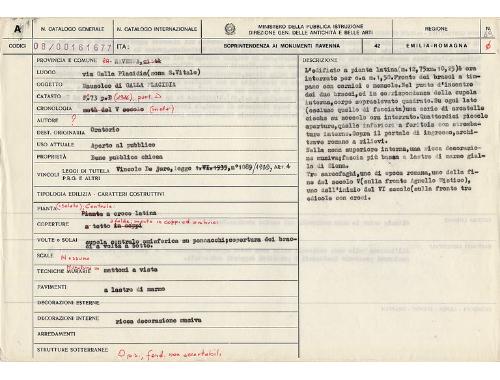 A
N. CATALOGO GENERALE
N. CATALOGO INTERNAZIONALE
MINISTERO DELLA PUBBLICA ISTRUZIONE
DIREZIONE GEN. DELLE ANTICHITÀ E BELLE ARTI
REGIONE
N.
CODICI
08/00161677
ITA:
SOPRINTENDENZA AI MONUMENTI RAVENNA
42
EMILIA-ROMAGNA
PROVINCIA E COMUNE
RA. RAVENNA,
LUOGO
via Galla Placidia(zona S.Vitale)
OGGETTO
Mausoleo di GALLA PLACIDIA
CATASTO
F°73 p.B
CRONOLOGIA
metà del V secolo
AUTORE
?
DEST. ORIGINARIA
Oratorio
USO ATTUALE
Aperto al pubblico
PROPRIETÀ
Bene pubblico chiesa
VINCOLI
LEGGI DI TUTELA
P.R.G. E ALTRI
Vincolo De Jure, legge 1.VI.1939, n°1089/1939, Art. 4
TIPOLOGIA EDILIZIA - CARATTERI COSTRUTTIVI
PIANTA
(Isolato) Centrale:
Pianta a croce latina
COPERTURE
a tetto in coppi
VOLTE o SOLAI
cupola centrale emisferica su pennacchi;copertura dei brac-
ci a volta a botte.
SCALE
Nessuna
TECNICHE MURARIE
Muratura in
mattoni a vista
PAVIMENTI
a lastre di marmo
DECORAZIONI ESTERNE
DECORAZIONI INTERNE
ricca decorazione musiva
ARREDAMENTI
STRUTTURE SOTTERRANEE
Opis, fond. non accertabili
DESCRIZIONE
L'edificio a pianta latina(m.12,75xm.10,25)è ora
interrato per c.a m.1,50.Fronte dei bracci a tim-
pano con cornici e mensole.Nel punto d'incontro
dei bracci, ed in corrispondenza della cupola
interna,corpo sopraelevato quadrato.Su ogni lato
(escluso quello di facciata)una serie di arcatelle
cieche su zoccolo ora interrato.Quattordici piccole
aperture,quelle inferiori a feritoia con strombature
interne.Sopra il portale di ingresso,archi-
trave romano a rilievi.
Nella zona superiore interna,una ricca decorazione
musiva;fascia più bassa a lastre di marmo gial-
lo di Siena.
Tre sarcofaghi,uno di epoca romana,uno della fi-
ne del secolo V(sulla fronte Agnello Mistico),
uno dell'inizio del VI secolo(sulla fronte tre
edicole con croci.